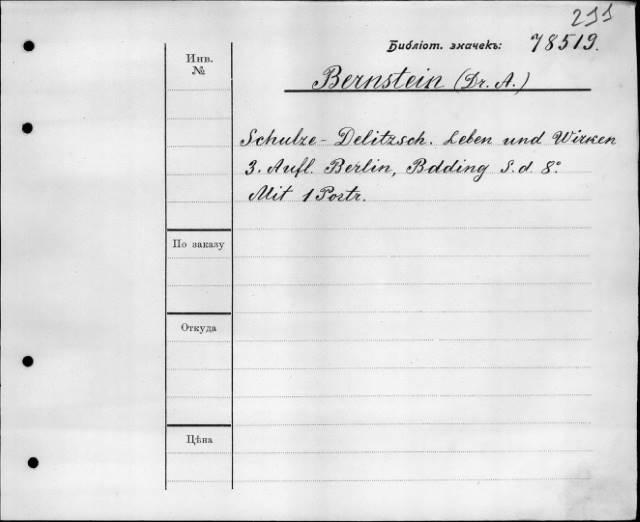 299
Библіот. значекъ: 78519.
Инв.
№
Bernstein (Dr. A.)
Schulze-Delitzsch. Leben und Wirken
3. Aufl. Berlin, Bdding S. d. 8°
Mit 1 Portr.
По заказу
Откуда
Цѣна